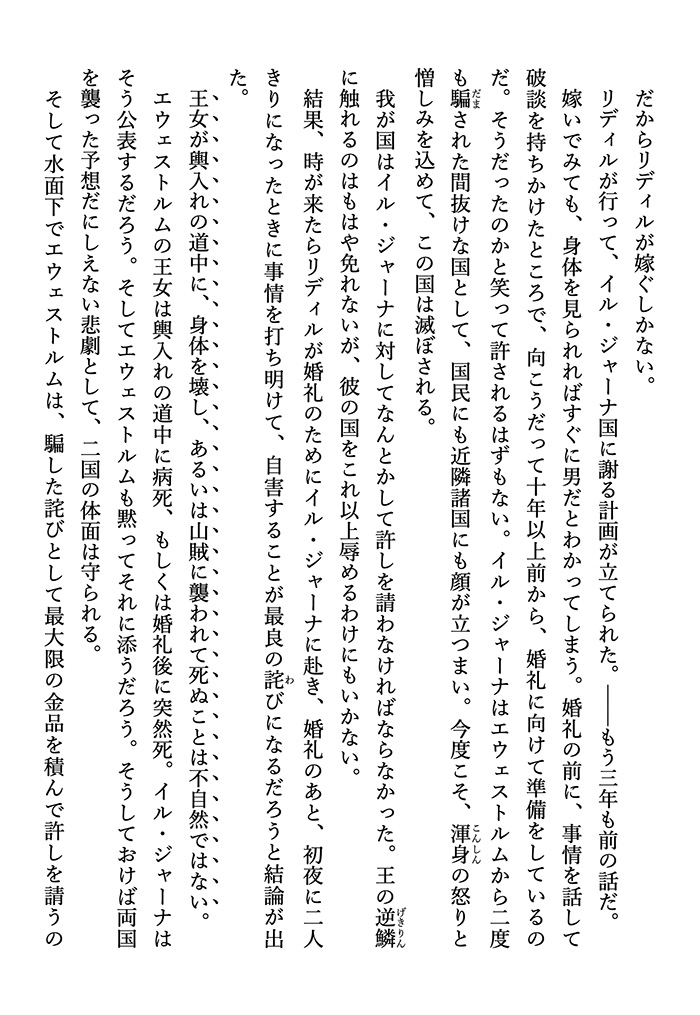 だからリディルが嫁ぐしかない。
リディルが行って、イル・ジャーナ国に謝る計画が立てられた。――もう三年も前の話だ。
嫁いでみても、身体を見られればすぐに男だとわかってしまう。婚礼の前に、事情を話して
破談を持ちかけたところで、向こうだって十年以上前から、婚礼に向けて準備をしているの
だ。そうだったのかと笑って許されるはずもない。イル・ジャーナはエウェストルムから二度
も騙された間抜けな国として、国民にも近隣諸国にも顔が立つまい。今度こそ、渾身の怒りと
憎しみを込めて、この国は滅ぼされる。
我が国はイル・ジャーナに対してなんとかして許しを請わなければならなかった。王の逆鱗
に触れるのはもはや免れないが、彼の国をこれ以上辱めるわけにもいかない。
結果、時が来たらリディルが婚礼のためにイル・ジャーナに赴き、婚礼のあと、初夜に二人
きりになったときに事情を打ち明けて、自害することが最良の詫びになるだろうと結論が出
た。
王女が輿入れの道中に、身体を壊し、あるいは山賊に襲われて死ぬことは不自然ではない。
エウェストルムの王女は輿入れの道中に病死、もしくは婚礼後に突然死。イル・ジャーナは
そう公表するだろう。そしてエウェストルムも黙ってそれに添うだろう。そうしておけば両国
を襲った予想だにしえない悲劇として、二国の体面は守られる。
そして水面下でエウェストルムは、騙した詫びとして最大限の金品を積んで許しを請うの